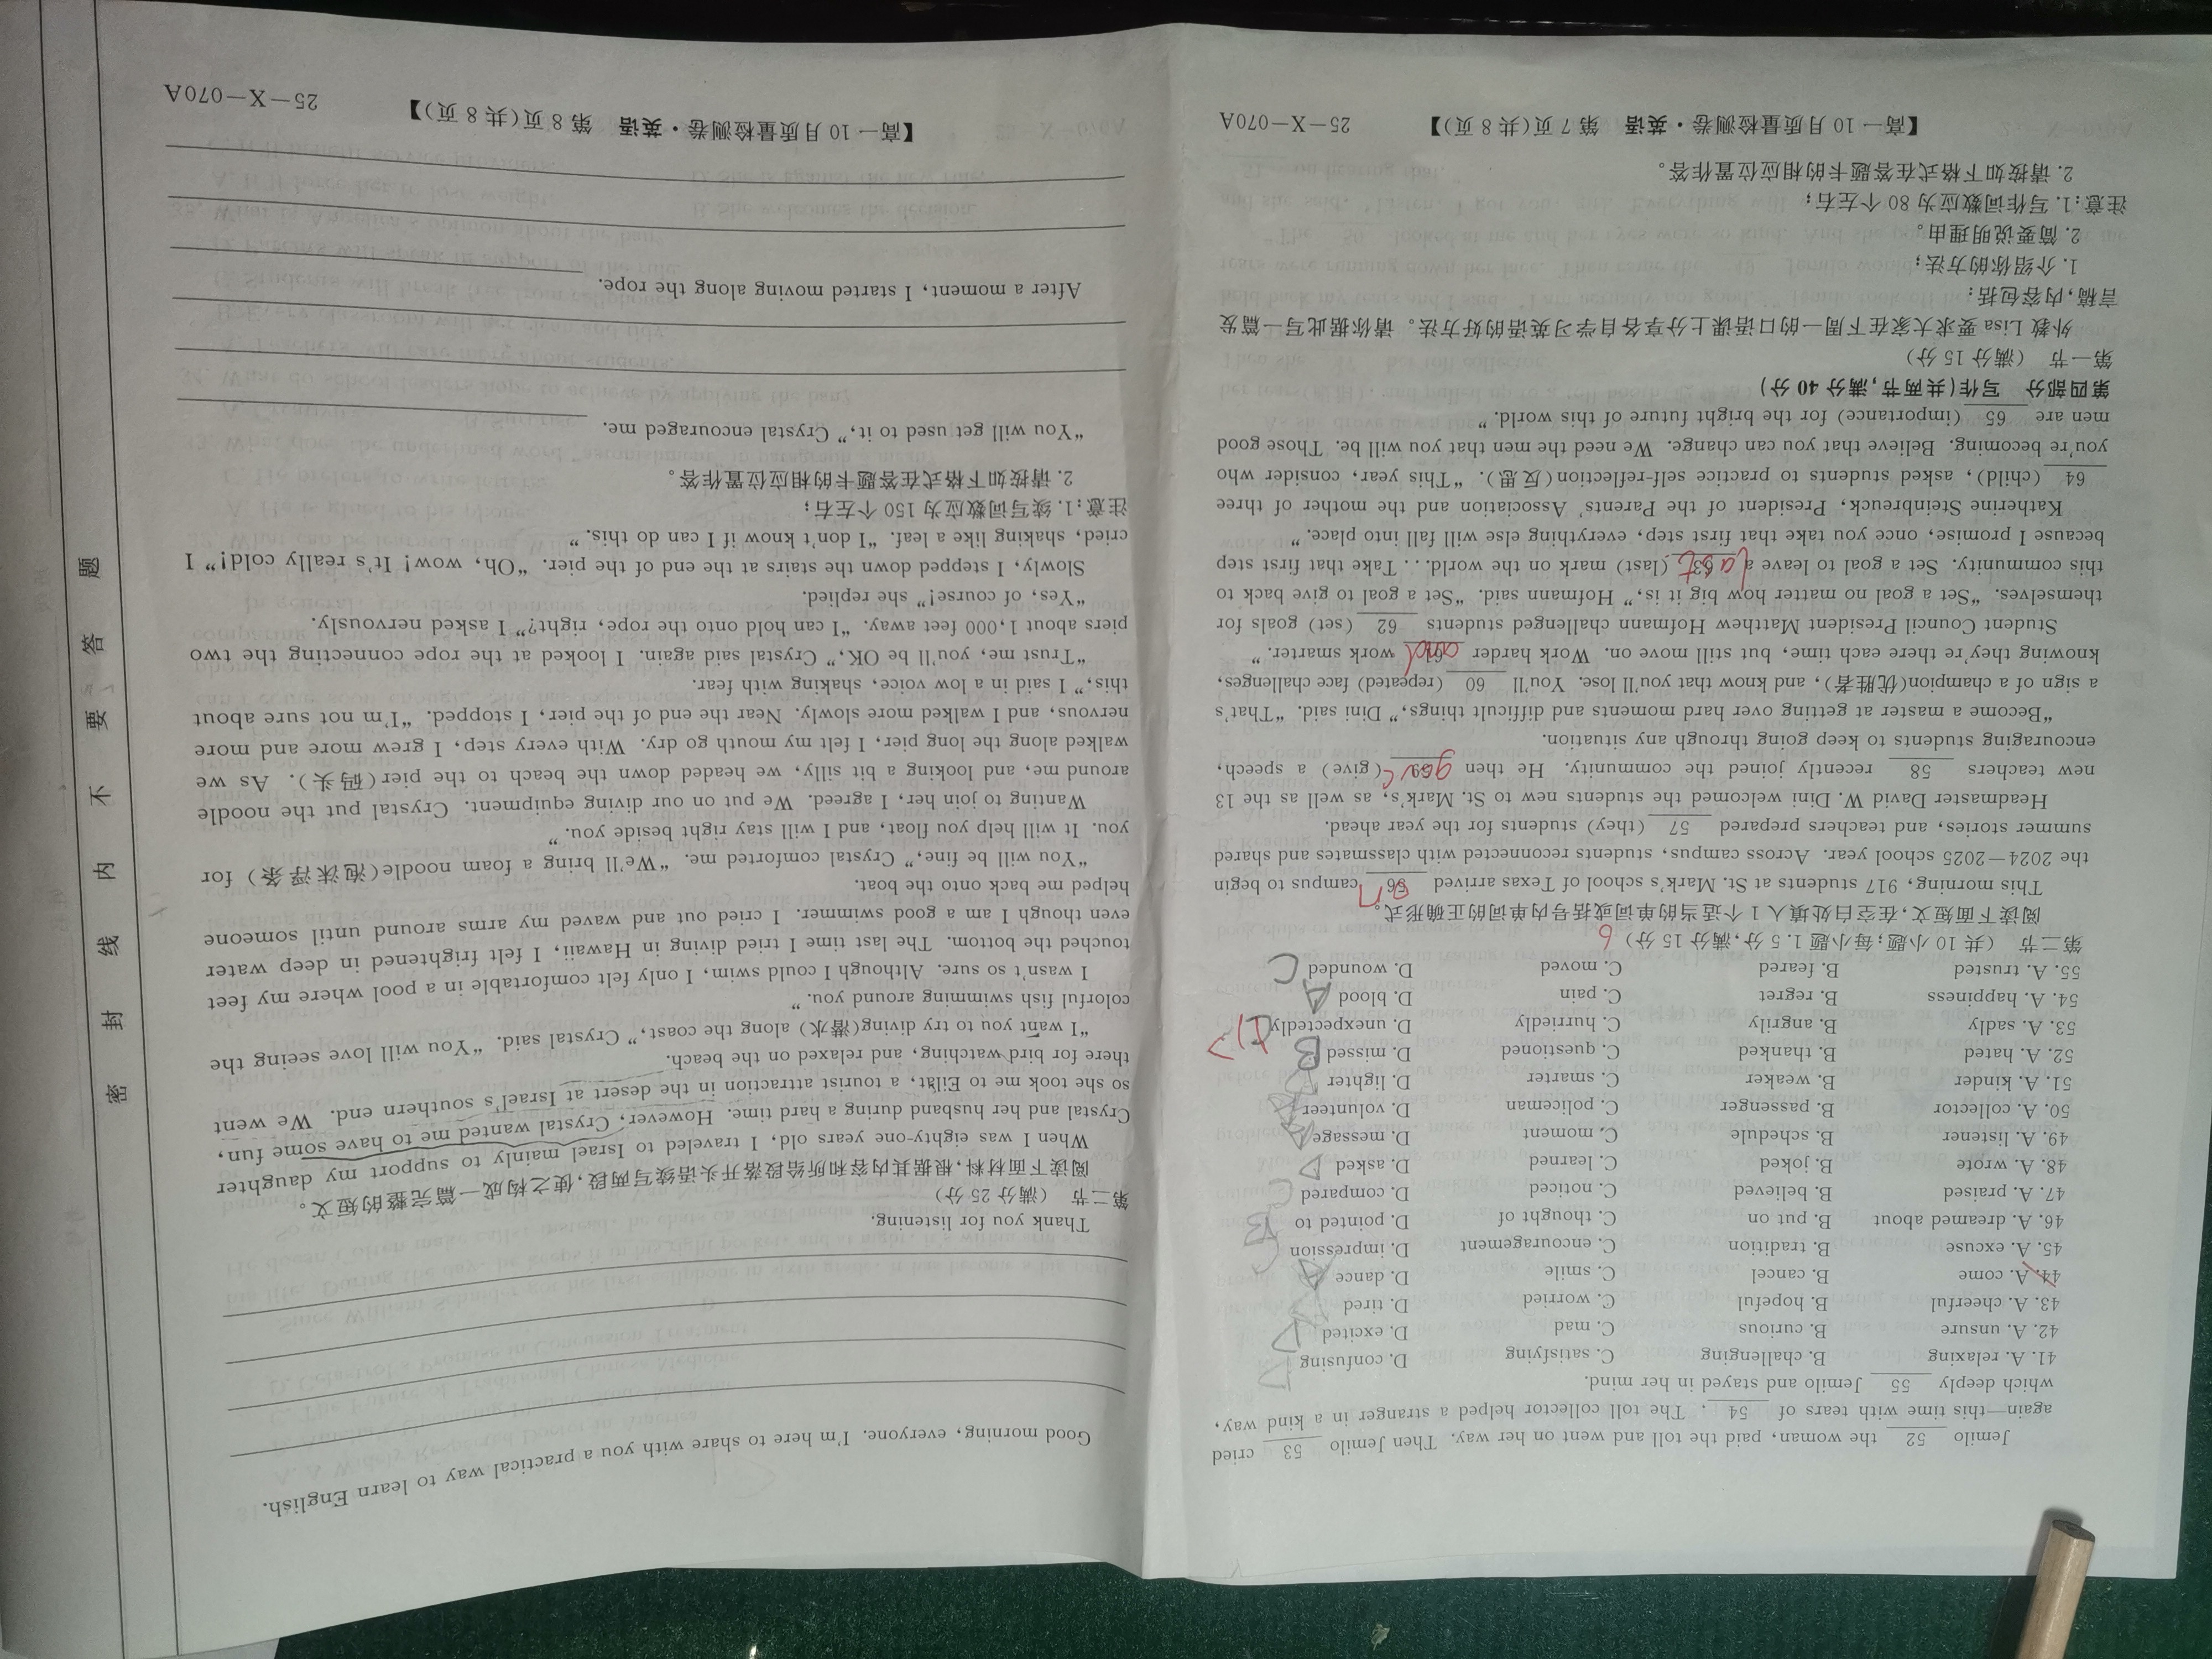 Jemilo 52 the woman, paid the toll and went on her way. Then Jemilo 53 cried
again—this time with tears of 54 . The toll collector helped a stranger in a kind way,
which deeply 55 Jemilo and stayed in her mind.
41. A. relaxing B. challenging C. satisfying D. confusing
42. A. unsure B. curious C. mad D. excited
43. A. cheerful B. hopeful C. worried D. tired
44. A. come B. cancel C. smile D. dance
45. A. excuse B. tradition C. encouragement D. impression
46. A. dreamed about B. put on C. thought of D. pointed to
47. A. praised B. believed C. noticed D. compared
48. A. wrote B. joked C. learned D. asked
49. A. listener B. schedule C. moment D. message
50. A. collector B. passenger C. policeman D. volunteer
51. A. kinder B. weaker C. smarter D. lighter
52. A. hated B. thanked C. questioned D. missed B
53. A. sadly B. angrily C. hurriedly D. unexpectedly
54. A. happiness B. regret C. pain D. blood A
55. A. trusted B. feared C. moved D. wounded C
第二节 (共 10 小题;每小题 1.5 分,满分 15 分) 6
阅读下面短文,在空白处填入 1 个适当的单词或括号内单词的正确形式。
This morning, 917 students at St. Mark's school of Texas arrived 56 on campus to begin
the 2024—2025 school year. Across campus, students reconnected with classmates and shared
summer stories, and teachers prepared 57 (they) students for the year ahead.
Headmaster David W. Dini welcomed the students new to St. Mark's, as well as the 13
new teachers 58 recently joined the community. He then 59 gave (give) a speech,
encouraging students to keep going through any situation.
“Become a master at getting over hard moments and difficult things,” Dini said. “That's
a sign of a champion(优胜者), and know that you'll lose. You'll 60 (repeated) face challenges,
knowing they're there each time, but still move on. Work harder 61 and work smarter.”
Student Council President Matthew Hofmann challenged students 62 (set) goals for
themselves. “Set a goal no matter how big it is,” Hofmann said. “Set a goal to give back to
this community. Set a goal to leave a 63 last (last) mark on the world... Take that first step
because I promise, once you take that first step, everything else will fall into place.”
Katherine Steinbreuck, President of the Parents' Association and the mother of three
64 (child), asked students to practice self-reflection(反思). “This year, consider who
you're becoming. Believe that you can change. We need the men that you will be. Those good
men are 65 (importance) for the bright future of this world.”
第四部分 写作(共两节,满分 40 分)
第一节 (满分 15 分)
外教 Lisa 要求大家在下周一的口语课上分享各自学习英语的好方法。请你据此写一篇发
言稿,内容包括:
1. 介绍你的方法;
2. 简要说明理由。
注意:1. 写作词数应为 80 个左右;
2. 请按如下格式在答题卡的相应位置作答。
【高一 10 月质量检测卷·英语 第 7 页(共 8 页)】 25—X—070A
Good morning, everyone. I'm here to share with you a practical way to learn English.
Thank you for listening.
第二节 (满分 25 分)
阅读下面材料,根据其内容和所给段落开头语续写两段,使之构成一篇完整的短文。
When I was eighty-one years old, I traveled to Israel mainly to support my daughter
Crystal and her husband during a hard time. However, Crystal wanted me to have some fun,
so she took me to Eilat, a tourist attraction in the desert at Israel's southern end. We went
there for bird watching, and relaxed on the beach.
“I want you to try diving(潜水) along the coast,” Crystal said. “You will love seeing the
colorful fish swimming around you.”
I wasn't so sure. Although I could swim, I only felt comfortable in a pool where my feet
touched the bottom. The last time I tried diving in Hawaii, I felt frightened in deep water
even though I am a good swimmer. I cried out and waved my arms around until someone
helped me back onto the boat.
“You will be fine,” Crystal comforted me. “We'll bring a foam noodle(泡沫浮条) for
you. It will help you float, and I will stay right beside you.”
Wanting to join her, I agreed. We put on our diving equipment. Crystal put the noodle
around me, and looking a bit silly, we headed down the beach to the pier(码头). As we
walked along the long pier, I felt my mouth go dry. With every step, I grew more and more
nervous, and I walked more slowly. Near the end of the pier, I stopped. “I'm not sure about
this,” I said in a low voice, shaking with fear.
“Trust me, you'll be OK,” Crystal said again. I looked at the rope connecting the two
piers about 1,000 feet away. “I can hold onto the rope, right?” I asked nervously.
“Yes, of course!” she replied.
Slowly, I stepped down the stairs at the end of the pier. “Oh, wow! It's really cold!” I
cried, shaking like a leaf. “I don't know if I can do this.”
注意:1. 续写词数应为 150 个左右;
2. 请按如下格式在答题卡的相应位置作答。
“You will get used to it,” Crystal encouraged me.
After a moment, I started moving along the rope.
【高一 10 月质量检测卷·英语 第 8 页(共 8 页)】 25—X—070A
密 封 线 内 不 要 答 题